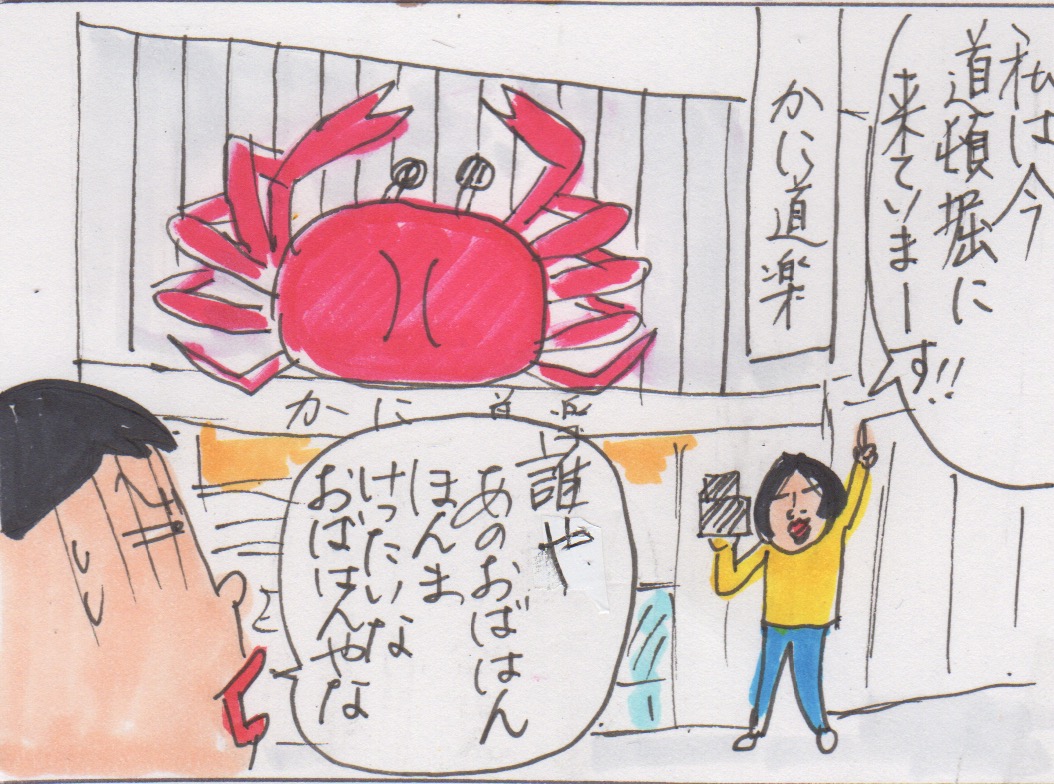 私は今
道頓堀に
来ていまーす!!
かに道楽
かに道楽
誰や
あのおばはん
ほんま
けったいな
おばはんやな